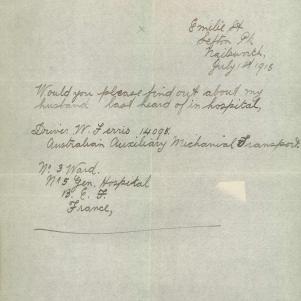 Emilie St
Sefton Pk
Nailsworth.
July 1st 1918
Would you please find out about my
husband last heard of in hospital,
Driver W. Ferris 14098
Australian Auxiliary Mechanial Transport.
No 3 Ward.
No 5 Gen. Hospital
B. E. F.
France,